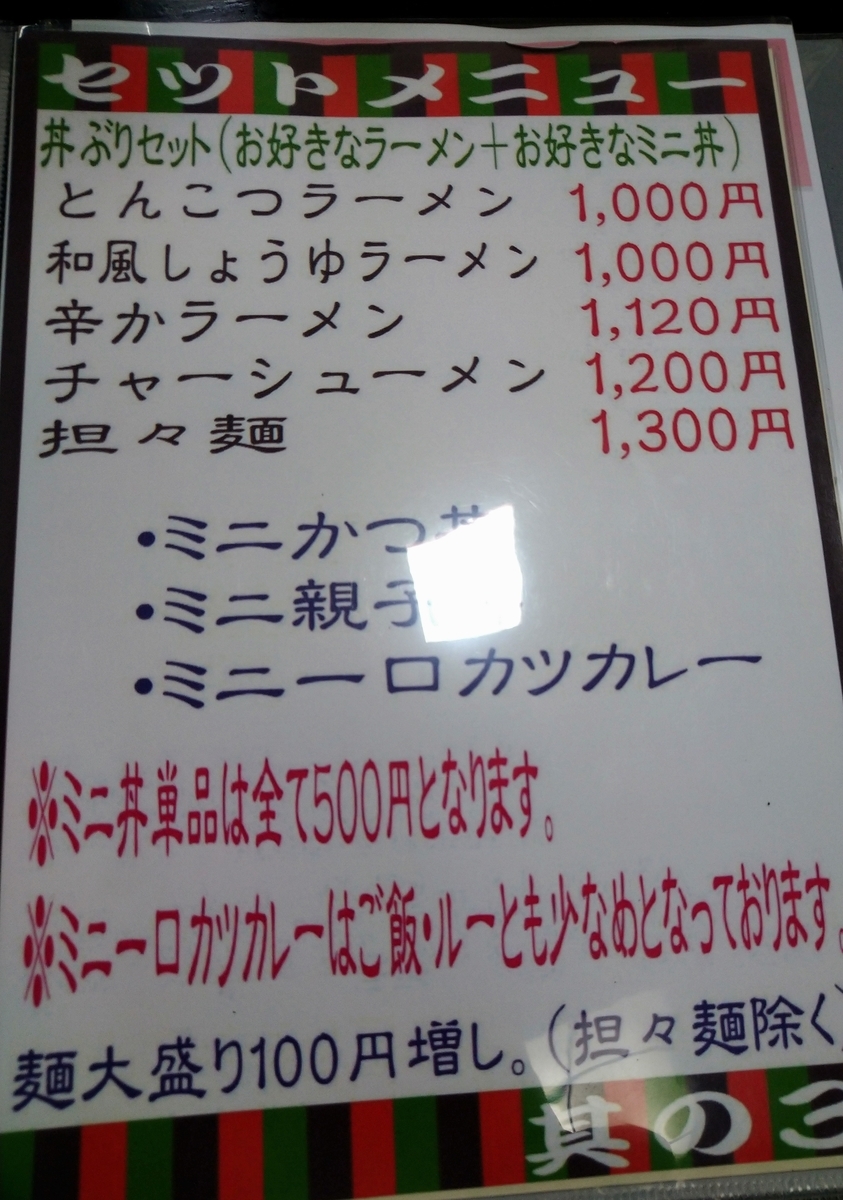 セットメニュー
丼ぶりセット(お好きなラーメン+お好きなミニ丼)
とんこつラーメン 1,000円
和風しょうゆラーメン 1,000円
辛かラーメン 1,120円
チャーシューメン 1,200円
担々麺 1,300円
・ミニかつ丼
・ミニ親子
・ミニ一口カツカレー
※ミニ丼単品は全て500円となります。
※ミニ一口カツカレーはご飯・ルーとも少なめとなっております。
麺大盛り100円増し。(担々麺除く)
其の三